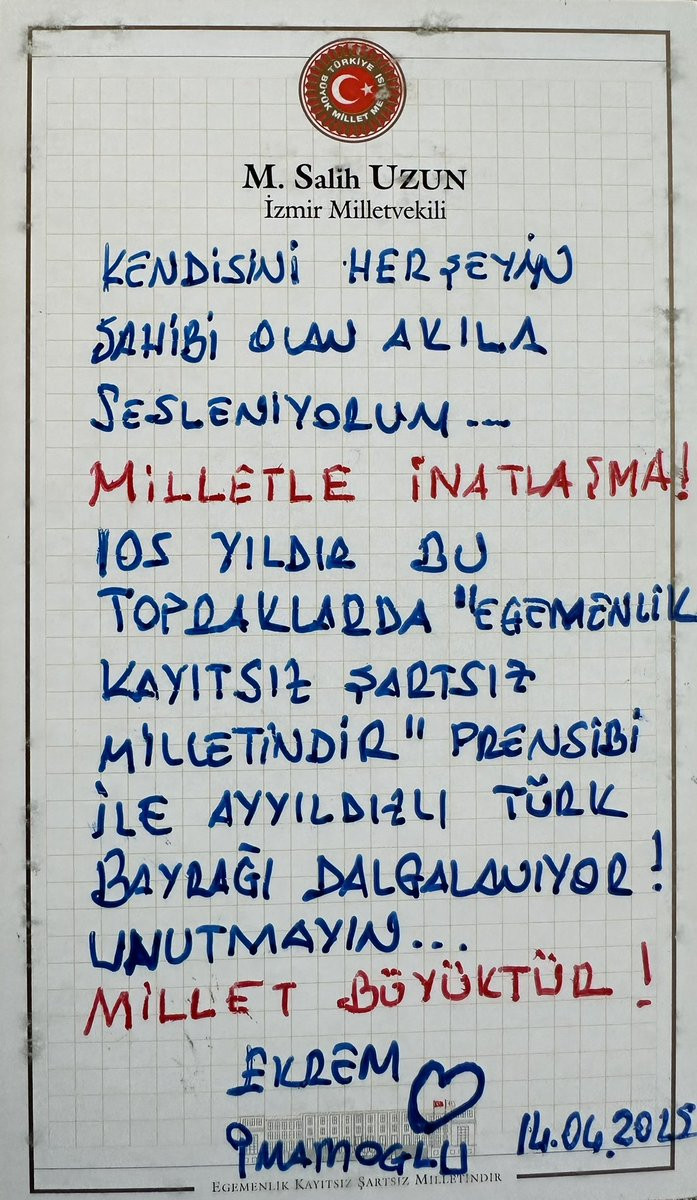 TÜRKİYE BÜYÜK MİLLET MECLİSİ
M. Salih UZUN
İzmir Milletvekili
KENDİSİNİ HERŞEYİN
SAHİBİ OLAN AKILA
SESLENİYORUM...
MİLLETLE İNATLAŞMA!
105 YILDIR BU
TOPRAKLARDA "EGEMENLİK
KAYITSIZ ŞARTSIZ
MİLLETİNDİR" PRENSİBİ
İLE AYYILDIZLI TÜRK
BAYRAĞI DALGALANIYOR!
UNUTMAYIN...
MİLLET BÜYÜKTÜR!
EKREM
İMAMOĞLU 14.04.2025
EGEMENLİK KAYITSIZ ŞARTSIZ MİLLETİNDİR